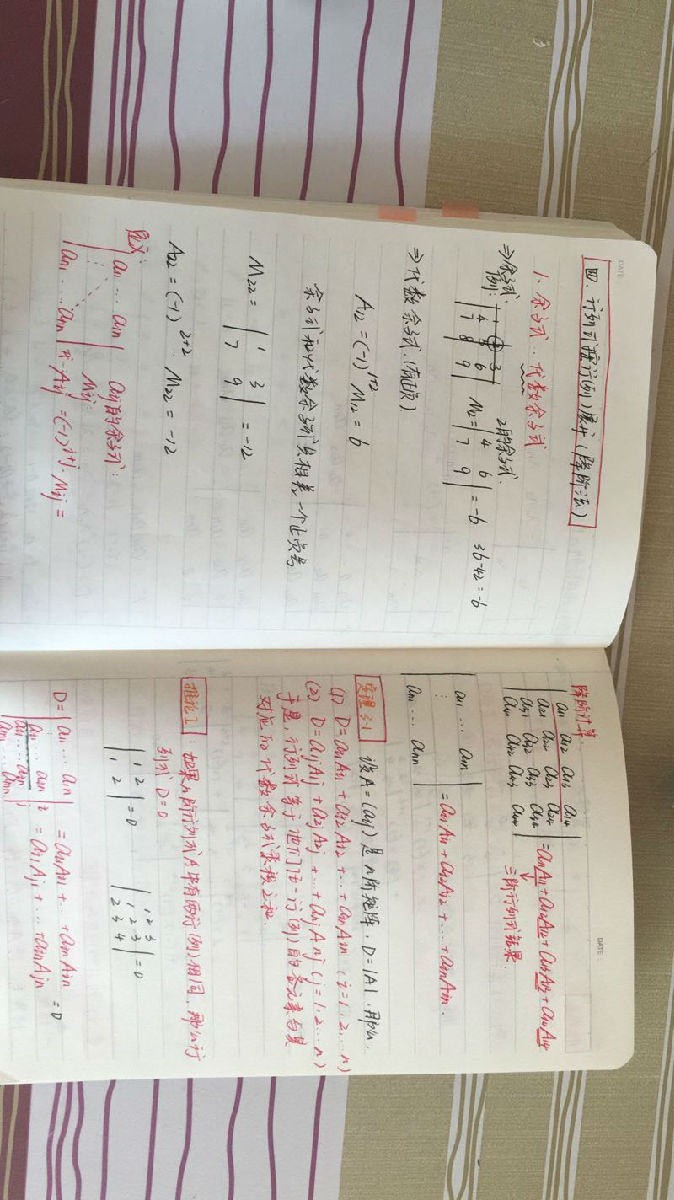 DATE
四 行列式按行(列)展开(降阶法)
1. 余子式. 代数余子式
⇒余子式. 2的余子式.
例: | 1 2 3
4 5 6
7 8 9 | M₁₂ = | 4 6
7 9 | = -6 36-42=-6
⇒代数余子式.(有正负)
A₁₂ = (-1)¹⁺² M₁₂ = 6
余子式和代数余子式只相差一个正负号
M₂₂ = | 1 3
7 9 | = -12
A₂₂ = (-1)²⁺². M₂₂ = -12
定义:
| a₁₁ … a₁ₙ
aₙ₁ … aₙₙ | aᵢⱼ的余子式:
Mᵢⱼ.
Aᵢⱼ = (-1)ⁱ⁺ʲ. Mᵢⱼ =
DATE:
降阶计算
| a₁₁ a₁₂ a₁₃ a₁₄
a₂₁ a₂₂ a₂₃ a₂₄
a₃₁ a₃₂ a₃₃ a₃₄
a₄₁ a₄₂ a₄₃ a₄₄ | = a₁₁A₁₁ + a₁₂A₁₂ + a₁₃A₁₃ + a₁₄A₁₄
三阶行列式结果.
| a₁₁ … a₁ₙ
⋮
aₙ₁ … aₙₙ | = a₁₁A₁₁ + a₁₂A₁₂ + … + a₁ₙA₁ₙ.
定理3-1 设A = (aᵢⱼ)是n阶矩阵. D = |A|. 那么.
(1) D = aᵢ₁Aᵢ₁ + aᵢ₂Aᵢ₂ + … + aᵢₙAᵢₙ (i = 1. 2. … n)
(2) D = a₁ⱼA₁ⱼ + a₂ⱼA₂ⱼ + … + aₙⱼAₙⱼ (j = 1. 2 … n)
于是, 行列式等于它们任一行(列)的各元素与其
对应的代数余子式乘积之和.
推论1 如果n阶行列式A中有两行(列)相同, 那么行
列式D=0
| 1 2
1 2 | = 0 | 1 2 3
1 2 3
2 3 4 | = 0
D = | a₁₁ … a₁ₙ
aₙ₁ … aₙₙ | = aᵢ₁Aᵢ₁ + … + aᵢₙAᵢₙ
= aᵢ₁Aⱼ₁ + … + aᵢₙAⱼₙ = 0